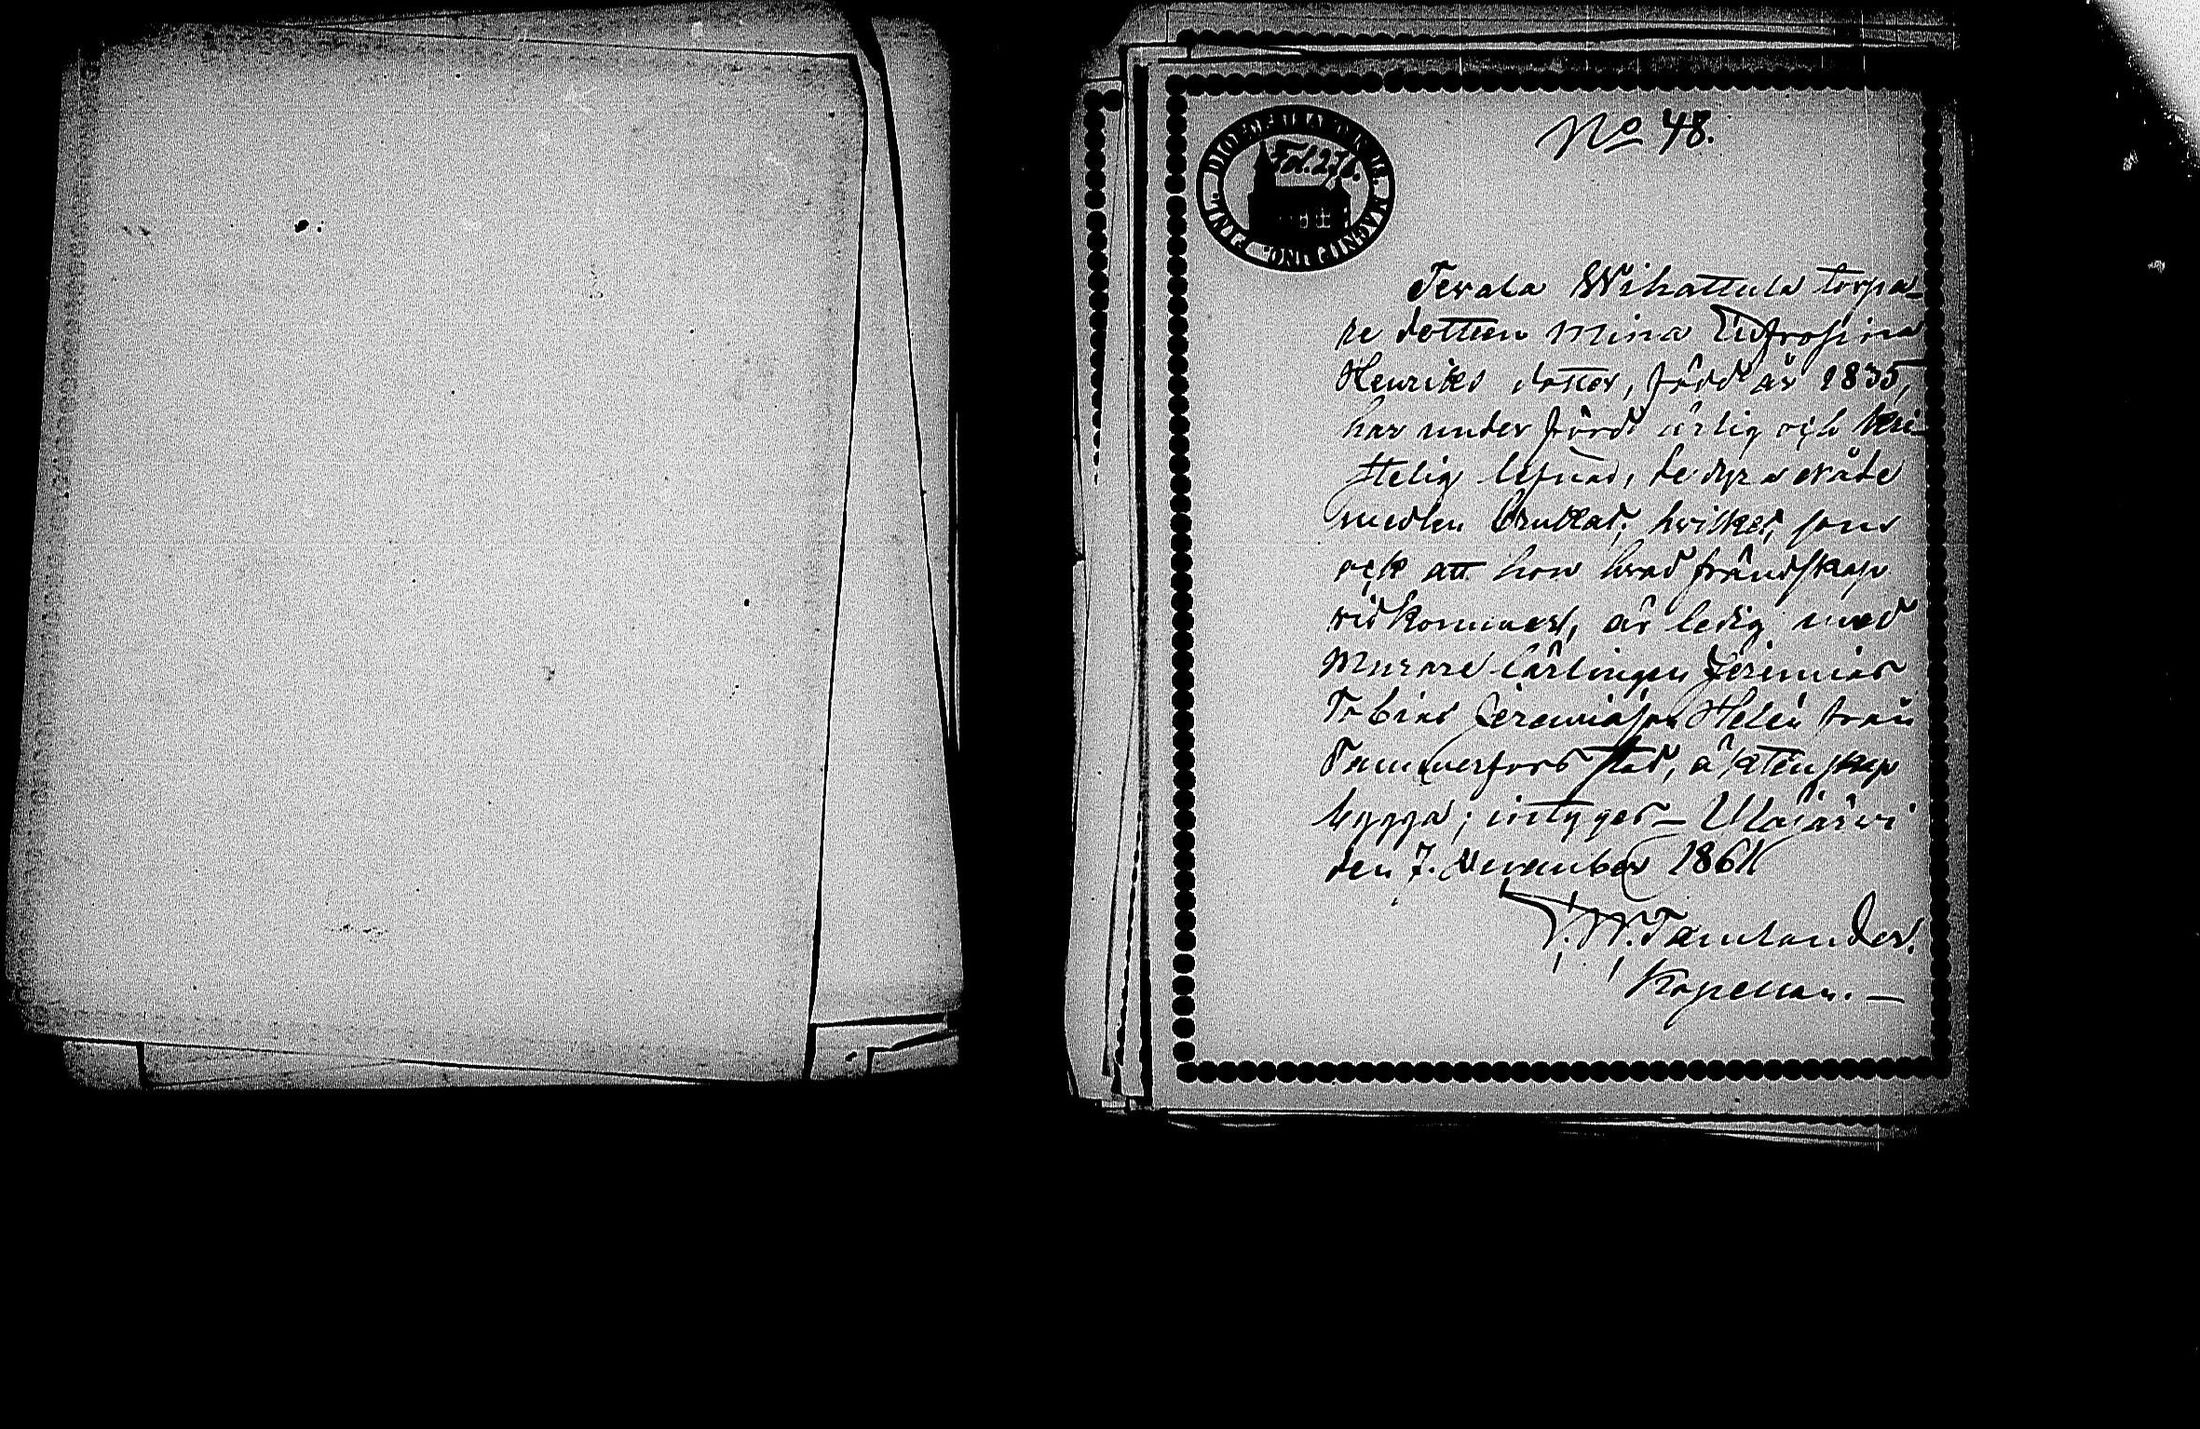 No 48.
Fol. 276.
Terala Wihattula torpa-
re dottren Mina Eufrosina
Henriks dotter, född år 1835,
har under förd ärlig och kri-
stelig lefnad, de dyra nåde
medlen brukat; hvilket, som
ock att hon hvad frändskap
vidkommer, är ledig med
Murare lärlingen Jeremias
Tobias Jeremiasson Helén från
Tammerfors stad, äktenskap
bygga; intygar — Ulajärvi
den 7. November 1861
T. W. Tamlander.
Kapellan. —